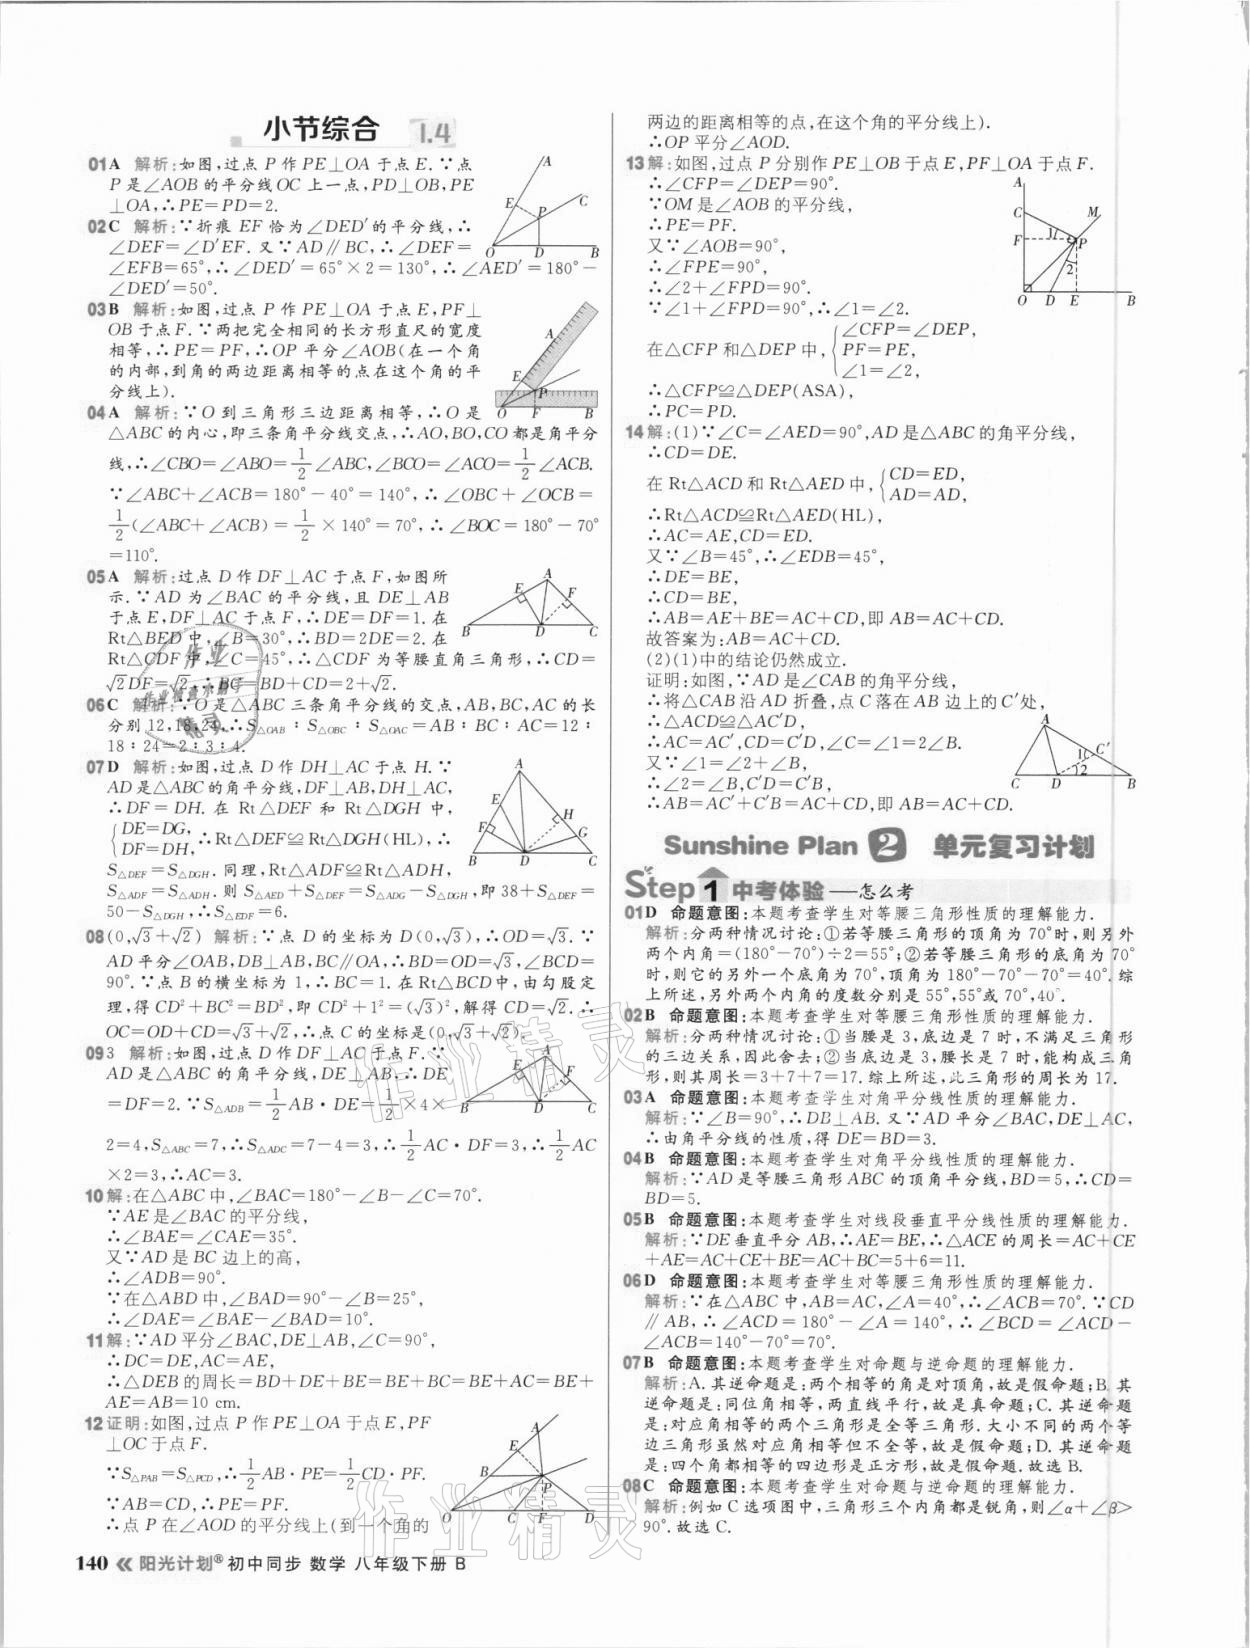 小节综合 1.4
01 A 解析:如图,过点 P 作 PE⊥OA 于点 E.∵点
P 是∠AOB 的平分线 OC 上一点,PD⊥OB,PE
⊥OA,∴PE=PD=2.
02 C 解析:∵折痕 EF 恰为∠DED′的平分线,∴
∠DEF=∠D′EF.又∵AD∥BC,∴∠DEF=
∠EFB=65°,∴∠DED′=65°×2=130°,∴∠AED′=180°-
∠DED′=50°.
03 B 解析:如图,过点 P 作 PE⊥OA 于点 E,PF⊥
OB 于点 F.∵两把完全相同的长方形直尺的宽度
相等,∴PE=PF,∴OP 平分∠AOB(在一个角
的内部,到角的两边距离相等的点在这个角的平
分线上).
04 A 解析:∵O 到三角形三边距离相等,∴O 是
△ABC 的内心,即三条角平分线交点,∴AO,BO,CO 都是角平分
线,∴∠CBO=∠ABO=1/2∠ABC,∠BCO=∠ACO=1/2∠ACB.
∵∠ABC+∠ACB=180°-40°=140°,∴∠OBC+∠OCB=
1/2(∠ABC+∠ACB)=1/2×140°=70°,∴∠BOC=180°-70°
=110°.
05 A 解析:过点 D 作 DF⊥AC 于点 F,如图所
示.∵AD 为∠BAC 的平分线,且 DE⊥AB
于点 E,DF⊥AC 于点 F,∴DE=DF=1.在
Rt△BED 中,∠B=30°,∴BD=2DE=2.在
Rt△CDF 中,∠C=45°,∴△CDF 为等腰直角三角形,∴CD=
√2DF=√2,∴BC=BD+CD=2+√2.
06 C 解析:∵O 是△ABC 三条角平分线的交点,AB,BC,AC 的长
分别 12,18,24,∴S△OAB∶S△OBC∶S△OAC=AB∶BC∶AC=12∶
18∶24=2∶3∶4.
07 D 解析:如图,过点 D 作 DH⊥AC 于点 H.∵
AD 是△ABC 的角平分线,DF⊥AB,DH⊥AC,
∴DF=DH.在 Rt△DEF 和 Rt△DGH 中,
{DE=DG, DF=DH,∴Rt△DEF≌Rt△DGH(HL),∴
S△DEF=S△DGH.同理,Rt△ADF≌Rt△ADH,
S△ADF=S△ADH.则 S△AED+S△DEF=S△ADG-S△DGH,即 38+S△DEF=
50-S△DGH,∴S△EDF=6.
08 (0,√3+√2) 解析:∵点 D 的坐标为 D(0,√3),∴OD=√3.∵
AD 平分∠OAB,DB⊥AB,BC∥OA,∴BD=OD=√3,∠BCD=
90°.∵点 B 的横坐标为 1,∴BC=1.在 Rt△BCD 中,由勾股定
理,得 CD²+BC²=BD²,即 CD²+1²=(√3)²,解得 CD=√2.∴
OC=OD+CD=√3+√2,∴点 C 的坐标是(0,√3+√2).
09 3 解析:如图,过点 D 作 DF⊥AC 于点 F.∵
AD 是△ABC 的角平分线,DE⊥AB,∴DE
=DF=2.∵S△ADB=1/2AB·DE=1/2×4×
2=4,S△ABC=7,∴S△ADC=7-4=3,∴1/2AC·DF=3,∴1/2AC
×2=3,∴AC=3.
10 解:在△ABC 中,∠BAC=180°-∠B-∠C=70°.
∵AE 是∠BAC 的平分线,
∴∠BAE=∠CAE=35°.
又∵AD 是 BC 边上的高,
∴∠ADB=90°.
∵在△ABD 中,∠BAD=90°-∠B=25°,
∴∠DAE=∠BAE-∠BAD=10°.
11 解:∵AD 平分∠BAC,DE⊥AB,∠C=90°,
∴DC=DE,AC=AE,
∴△DEB 的周长=BD+DE+BE=BE+BC=BE+AC=BE+
AE=AB=10 cm.
12 证明:如图,过点 P 作 PE⊥OA 于点 E,PF
⊥OC 于点 F.
∵S△PAB=S△PCD,∴1/2AB·PE=1/2CD·PF.
∵AB=CD,∴PE=PF.
∴点 P 在∠AOD 的平分线上(到一个角的
140 阳光计划® 初中同步 数学 八年级下册 B
两边的距离相等的点,在这个角的平分线上).
∴OP 平分∠AOD.
13 解:如图,过点 P 分别作 PE⊥OB 于点 E,PF⊥OA 于点 F.
∴∠CFP=∠DEP=90°.
∵OM 是∠AOB 的平分线,
∴PE=PF.
又∵∠AOB=90°,
∴∠FPE=90°,
∴∠2+∠FPD=90°.
∵∠1+∠FPD=90°,∴∠1=∠2.
在△CFP 和△DEP 中,{∠CFP=∠DEP, PF=PE, ∠1=∠2,
∴△CFP≌△DEP(ASA),
∴PC=PD.
14 解:(1)∵∠C=∠AED=90°,AD 是△ABC 的角平分线,
∴CD=DE.
在 Rt△ACD 和 Rt△AED 中,{CD=ED, AD=AD,
∴Rt△ACD≌Rt△AED(HL),
∴AC=AE,CD=ED.
又∵∠B=45°,∴∠EDB=45°,
∴DE=BE,
∴CD=BE,
∴AB=AE+BE=AC+CD,即 AB=AC+CD.
故答案为:AB=AC+CD.
(2)(1)中的结论仍然成立.
证明:如图,∵AD 是∠CAB 的角平分线,
∴将△CAB 沿 AD 折叠,点 C 落在 AB 边上的 C′处,
∴△ACD≌△AC′D,
∴AC=AC′,CD=C′D,∠C=∠1=2∠B.
又∵∠1=∠2+∠B,
∴∠2=∠B,C′D=C′B,
∴AB=AC′+C′B=AC+CD,即 AB=AC+CD.
Sunshine Plan 2 单元复习计划
Step 1 中考体验——怎么考
01 D 命题意图:本题考查学生对等腰三角形性质的理解能力.
解析:分两种情况讨论:①若等腰三角形的顶角为 70°时,则另外
两个内角=(180°-70°)÷2=55°;②若等腰三角形的底角为 70°
时,则它的另外一个底角为 70°,顶角为 180°-70°-70°=40°.综
上所述,另外两个内角的度数分别是 55°,55°或 70°,40°.
02 B 命题意图:本题考查学生对等腰三角形性质的理解能力.
解析:分两种情况讨论:①当腰是 3,底边是 7 时,不满足三角形
的三边关系,因此舍去;②当底边是 3,腰长是 7 时,能构成三角
形,则其周长=3+7+7=17.综上所述,此三角形的周长为 17.
03 A 命题意图:本题考查学生对角平分线性质的理解能力.
解析:∵∠B=90°,∴DB⊥AB.又∵AD 平分∠BAC,DE⊥AC,
∴由角平分线的性质,得 DE=BD=3.
04 B 命题意图:本题考查学生对角平分线性质的理解能力.
解析:∵AD 是等腰三角形 ABC 的顶角平分线,BD=5,∴CD=
BD=5.
05 B 命题意图:本题考查学生对线段垂直平分线性质的理解能力.
解析:∵DE 垂直平分 AB,∴AE=BE,∴△ACE 的周长=AC+CE
+AE=AC+CE+BE=AC+BC=5+6=11.
06 D 命题意图:本题考查学生对等腰三角形性质的理解能力.
解析:∵在△ABC 中,AB=AC,∠A=40°,∴∠ACB=70°.∵CD
∥AB,∴∠ACD=180°-∠A=140°,∴∠BCD=∠ACD-
∠ACB=140°-70°=70°.
07 B 命题意图:本题考查学生对命题与逆命题的理解能力.
解析:A.其逆命题是:两个相等的角是对顶角,故是假命题;B.其
逆命题是:同位角相等,两直线平行,故是真命题;C.其逆命题
是:对应角相等的两个三角形是全等三角形.大小不同的两个等
边三角形虽然对应角相等但不全等,故是假命题;D.其逆命题
是:四个角都相等的四边形是正方形,故是假命题.故选 B.
08 C 命题意图:本题考查学生对命题与逆命题的理解能力.
解析:例如 C 选项图中,三角形三个内角都是锐角,则∠α+∠β>
90°.故选 C.
作业精灵
作业精灵